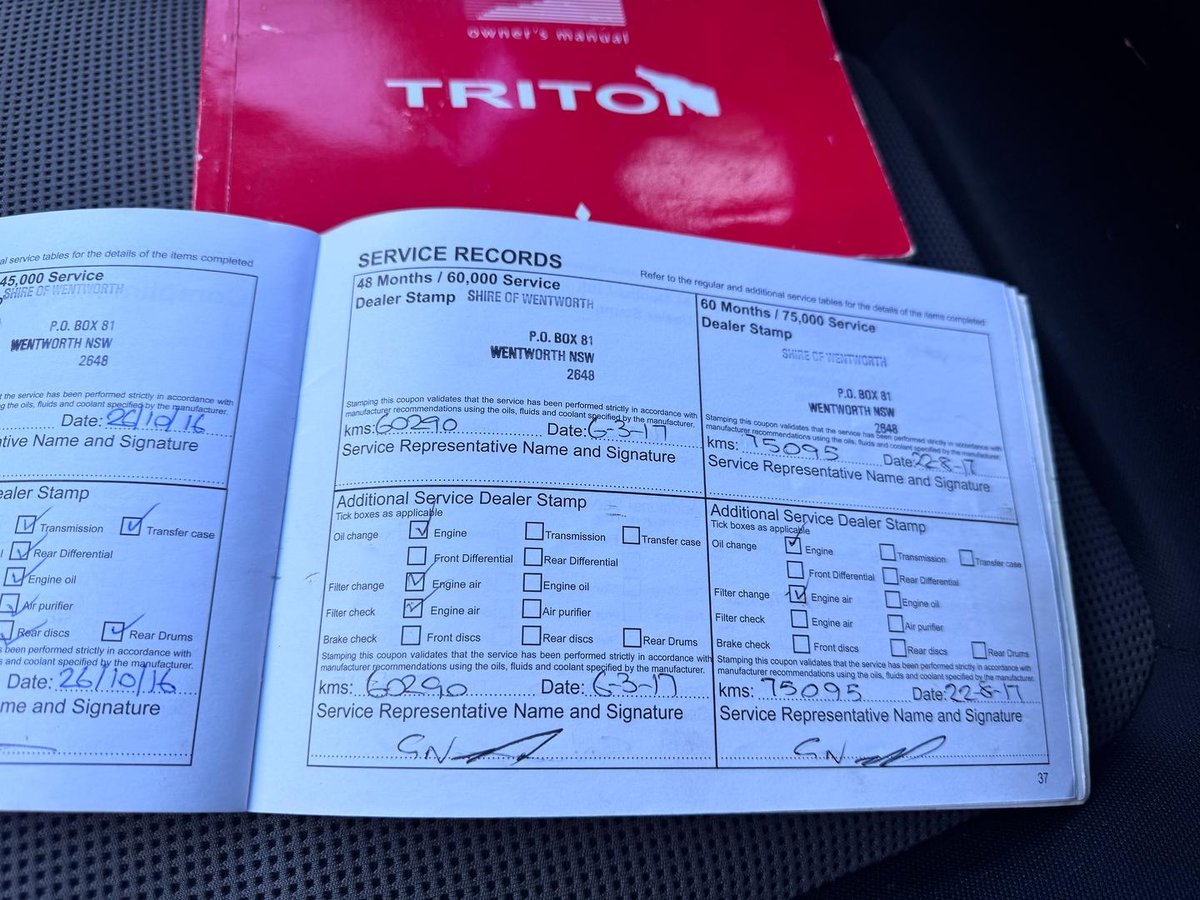 owner's manual
TRITON
al service tables for the details of the items completed
45,000 Service
SHIRE OF WENTWORTH
P.O. BOX 81
WENTWORTH NSW
2648
t the service has been performed strictly in accordance with
g the oils, fluids and coolant specified by the manufacturer.
Date: 26/10/16
tive Name and Signature
ealer Stamp
Transmission
Transfer case
Rear Differential
Engine oil
Air purifier
Rear discs
Rear Drums
s been performed strictly in accordance with
s and coolant specified by the manufacturer.
Date: 26/10/16
me and Signature
SERVICE RECORDS
Refer to the regular and additional service tables for the details of the items completed
48 Months / 60,000 Service
Dealer Stamp SHIRE OF WENTWORTH
P.O. BOX 81
WENTWORTH NSW
2648
Stamping this coupon validates that the service has been performed strictly in accordance with
manufacturer recommendations using the oils, fluids and coolant specified by the manufacturer.
kms: 60290 Date: 6-3-17
Service Representative Name and Signature
Additional Service Dealer Stamp
Tick boxes as applicable
Oil change Engine Transmission Transfer case
Front Differential Rear Differential
Filter change Engine air Engine oil
Filter check Engine air Air purifier
Brake check Front discs Rear discs Rear Drums
Stamping this coupon validates that the service has been performed strictly in accordance with
manufacturer recommendations using the oils, fluids and coolant specified by the manufacturer.
kms: 60290 Date: 6-3-17
Service Representative Name and Signature
GN
60 Months / 75,000 Service
Dealer Stamp
SHIRE OF WENTWORTH
P.O. BOX 81
WENTWORTH NSW
2648
Stamping this coupon validates that the service has been performed strictly in accordance with
manufacturer recommendations using the oils, fluids and coolant specified by the manufacturer.
kms: 75095 Date: 22-8-17
Service Representative Name and Signature
Additional Service Dealer Stamp
Tick boxes as applicable
Oil change Engine Transmission Transfer case
Front Differential Rear Differential
Filter change Engine air Engine oil
Filter check Engine air Air purifier
Brake check Front discs Rear discs Rear Drums
Stamping this coupon validates that the service has been performed strictly in accordance with
manufacturer recommendations using the oils, fluids and coolant specified by the manufacturer.
kms: 75095 Date: 22-8-17
Service Representative Name and Signature
GN
37